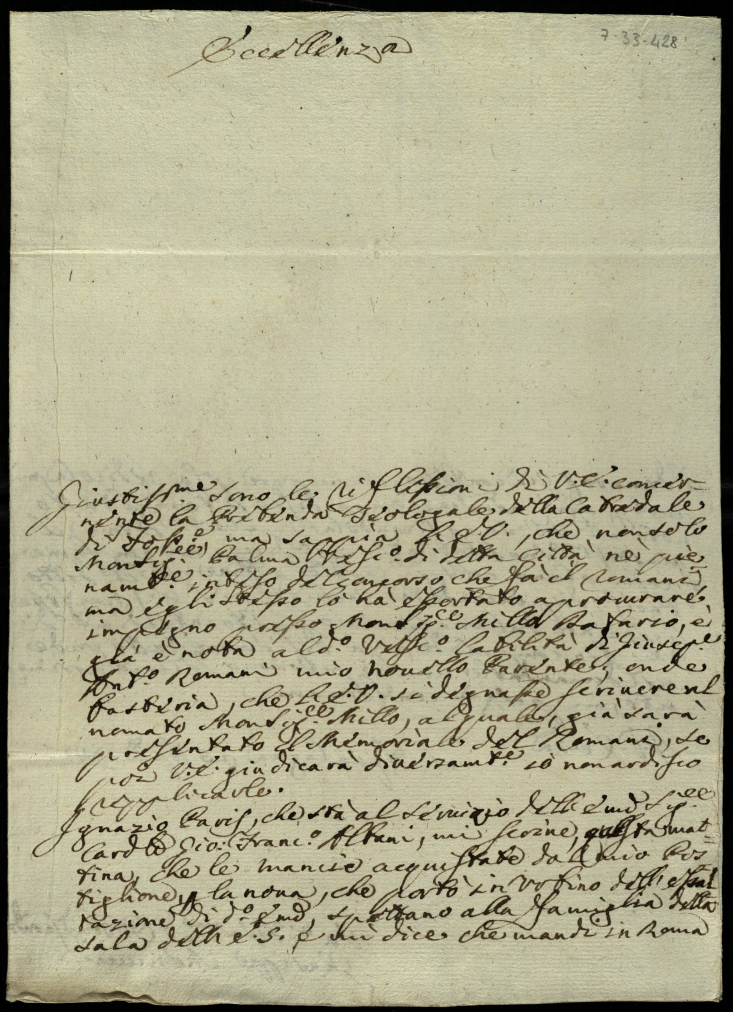 7-33-428
Eccellenza
Giustissme sono le riflessioni di V.E. concer-
nente la Prebenda Teologale della Catedale
di ma sappia l'E.V., che non solo
Monsigre Palma Vesco. di detta Città nè pie
namte. inteso del concorso che fà il Romani,
ma egli stesso lo hà esportato a procurare
impegno presso Monsigre Millo Datario, e
già è nota al do. Vesco. l'abilità di Giusepe.
Anto. Romani mio novello Parente; onde
basteria, che l'E.V. si degnasse scrivere al
nomato Monsigre Millo, al quale, già sarà
presentato il Memoriale del Romani, se
poi V.E. giudicarà diversamte. io non ardisco
supplicarle.
Ignazio Paris, che stà al servizio dell'Emo Sigre
Cardle Gio: Franco. Albani, mi scrive, questa mat-
tina, che le mancie acquistate dal mio Pos
tiglione, p la nova, che portò in votino dell'esal
tazione di do. Emo, spettano alla famiglia della
sala dell'E.S. e mi dice che mandi in Roma